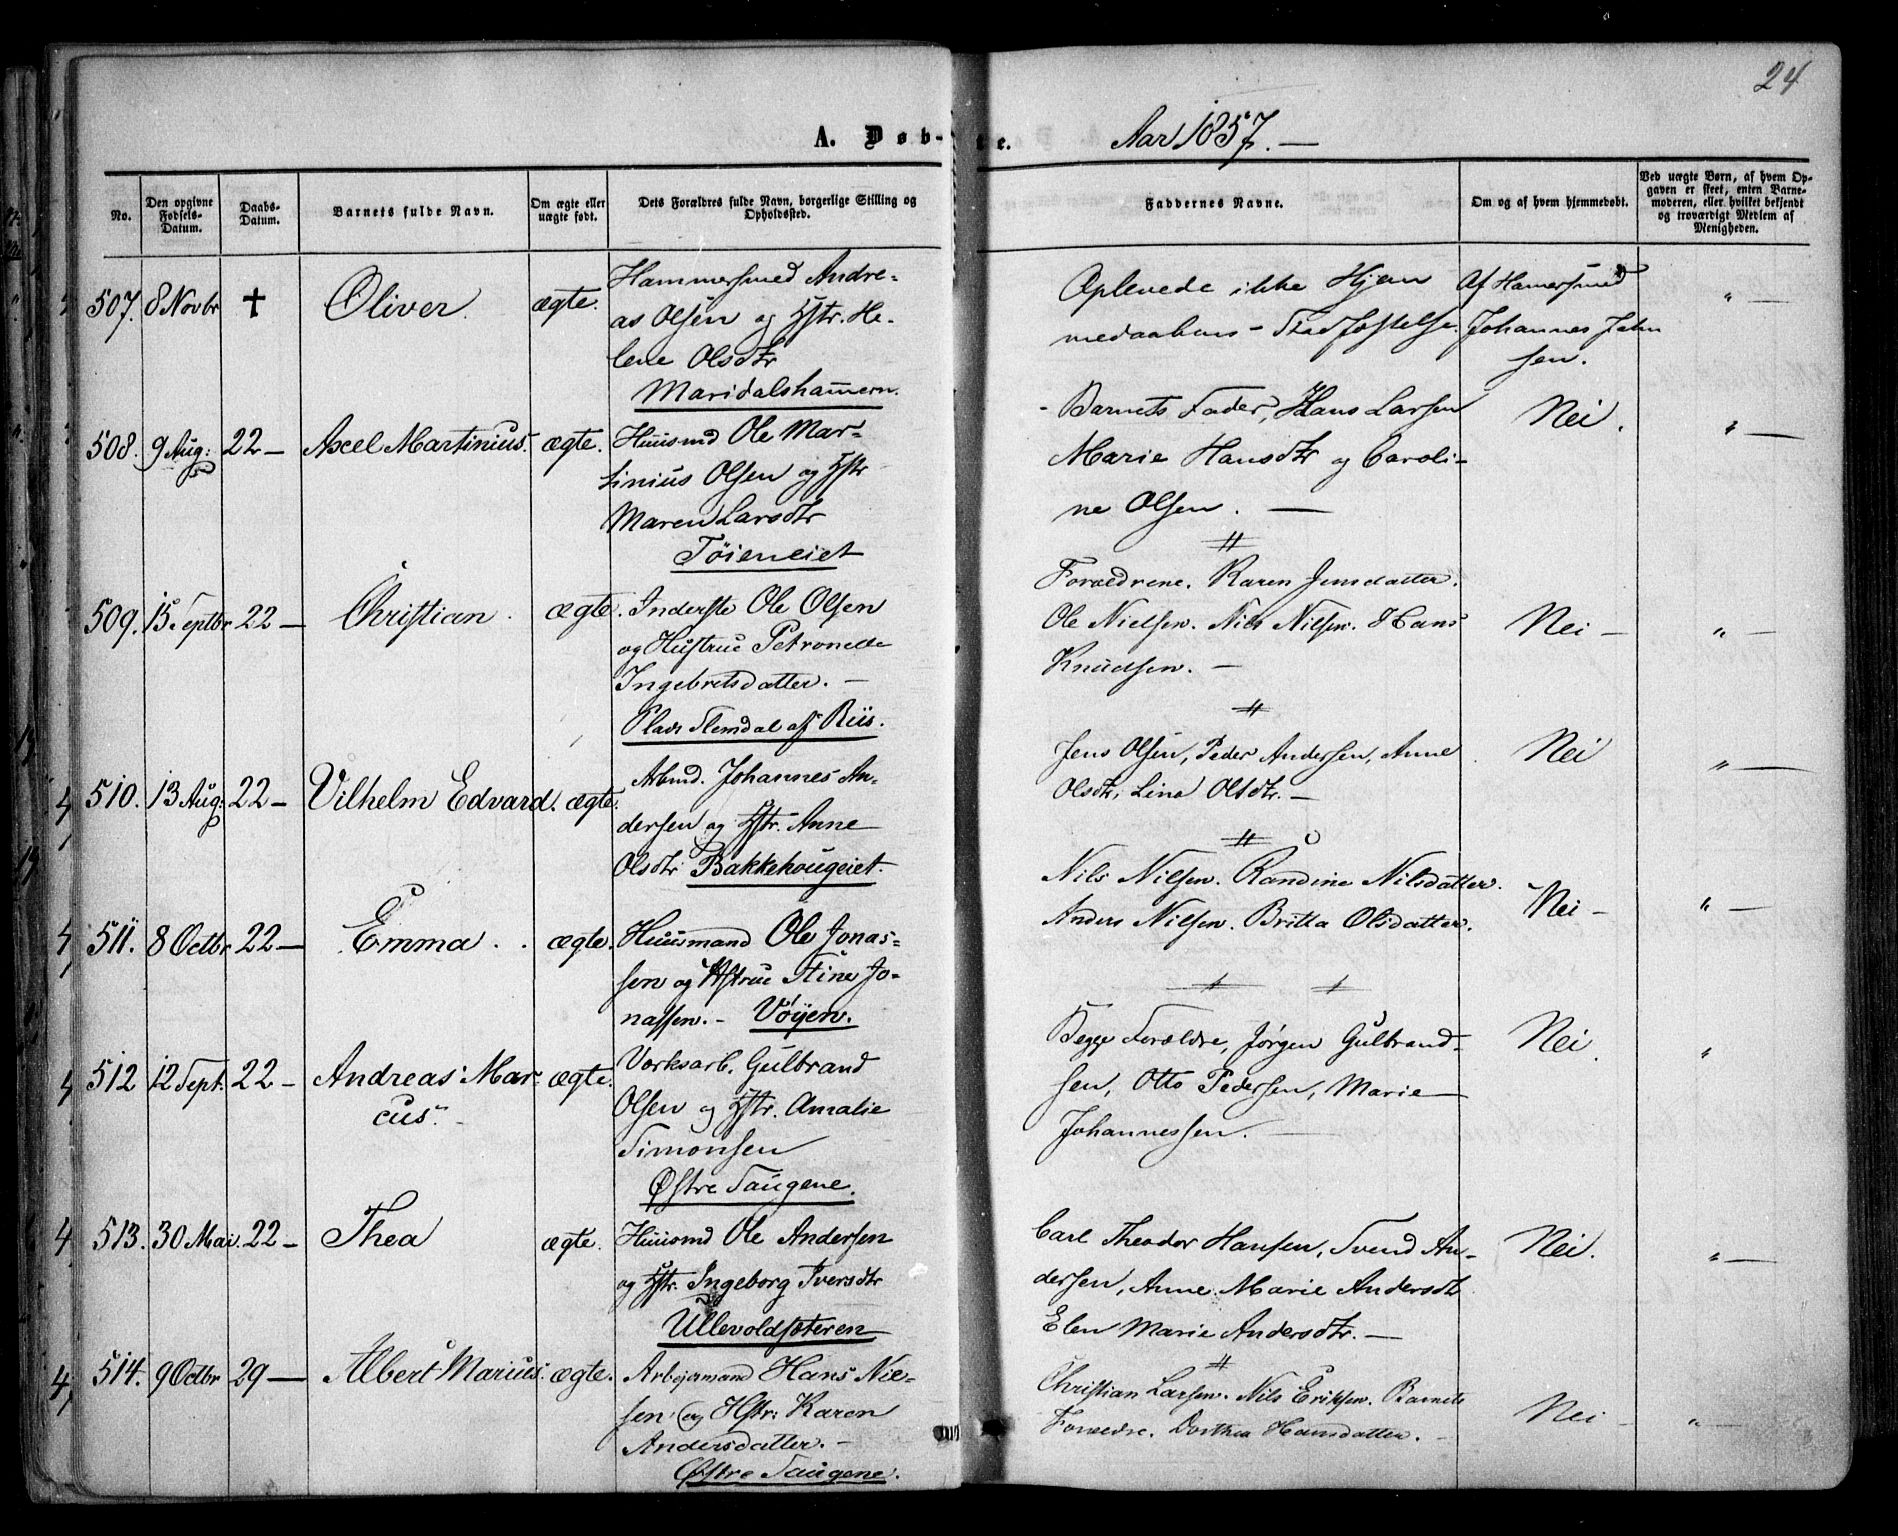 24
A. Døbte. Aar 1857. —
No.
Den opgivne Fødsels-Datum.
Daabs-Datum.
Barnets fulde Navn.
Om ægte eller uægte født.
Dets Forældres fulde Navn, borgerlige Stilling og Opholdssted.
Faddernes Navne.
Om og af hvem hjemmedøbt.
Ved uægte Børn, af hvem Opgaven er skeet, enten Barnemoderen, eller hvilket bekjendt og troværdigt Medlem af Menigheden.
507. 8 Novbr † Oliver. ægte.
Hammersmed Andre-
as Olsen og Hstr. He-
lene Olsdtr
Maridalshammern.
Oplevede ikke Hjem
medaabens - Stadfæstelse.
Af Hamersmed
Johannes John
sen.
" —
508. 9 Aug: 22 — Axel Martinius. ægte.
Huusmd Ole Mar-
tinius Olsen og Hstr
Maren Larsdtr
Tøieneiet
- Barnets Fader, Hans Larsen
Marie Hansdtr og Caroli-
ne Olsen. —
Nei.
" —
509. 15 Septbr 22 — Christian. ægte.
Inderste Ole Olsen
og Hustrue Petronelle
Ingebretsdatter. —
Plads Slemdal af Riis.
Forældrene. Karen Jensdatter.
Ole Nielsen. Nils Nilsen. Hans
Knudsen. —
Nei —
" —
510. 13 Aug: 22 — Vilhelm Edvard. ægte.
Arbmd. Johannes An-
dersen og Hstr. Anne
Olsdtr Bakkehougeiet.
Jens Olsen, Peder Andersen, Anne
Olsdtr, Lina Olsdtr. —
Nei
" —
511. 8 Octbr 22 — Emma. ægte.
Huusmand Ole Jonas-
sen og Hstrue Stine Jo-
nassen. — Vøyen.
Nils Nilsen. Randine Nilsdatter.
Anders Nilsen. Britta Olsdatter.
Nei —
" —
512 12 Sept. 22 — Andreas Mar-
cus. ægte.
Værksarb. Gulbrand
Olsen og Hstr. Amalie
Simonsen
Østre Saugene.
Begge Forældre, Jørgen Gulbrand-
sen, Otto Pedersen, Marie
Johannessen. —
Nei.
"
513. 30 Mai. 22 — Thea ægte.
Huusmd Ole Andersen
og Hstr. Ingeborg Iversdtr
Ullevoldsæteren
Carl Theodor Hansen, Svend An-
dersen, Anne Marie Andersdtr
Elen Marie Andersdtr. —
Nei.
" —
514. 9 Octbr 29 — Albert Marius. ægte.
Arbejdsmand Hans Niel-
sen og Hstr: Karen
Andersdatter. —
Østre Saugene.
Christian Larsen. Nils Eriksen. Barnets
Forældre. Dorthea Hansdatter.
Nei
" —